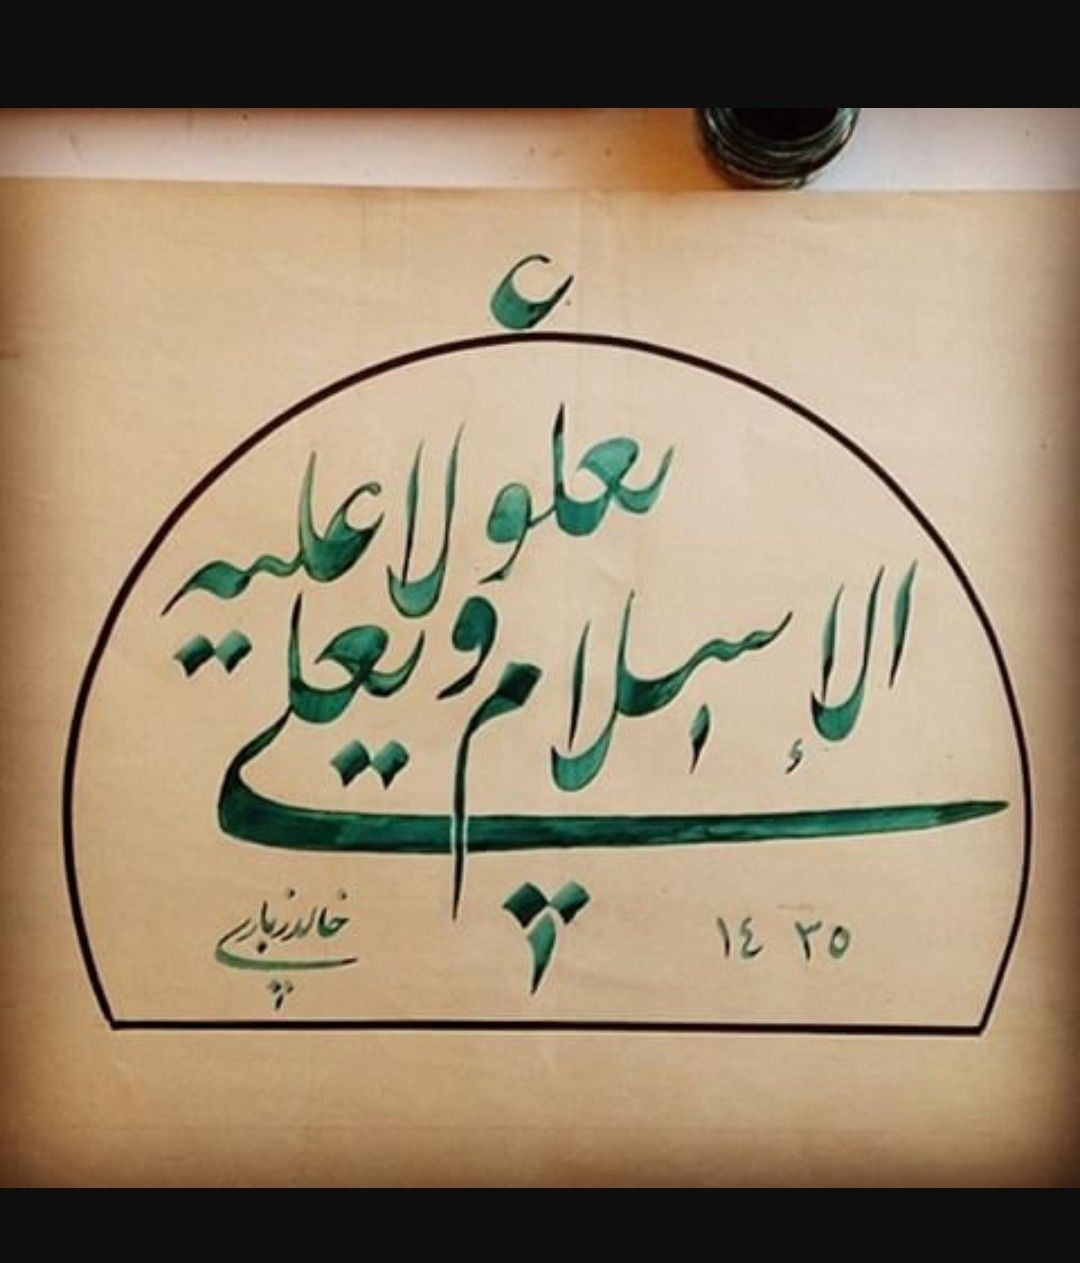 الإسلام يعلو ولا يعلى عليه
١٤٣٥
خالد زباري